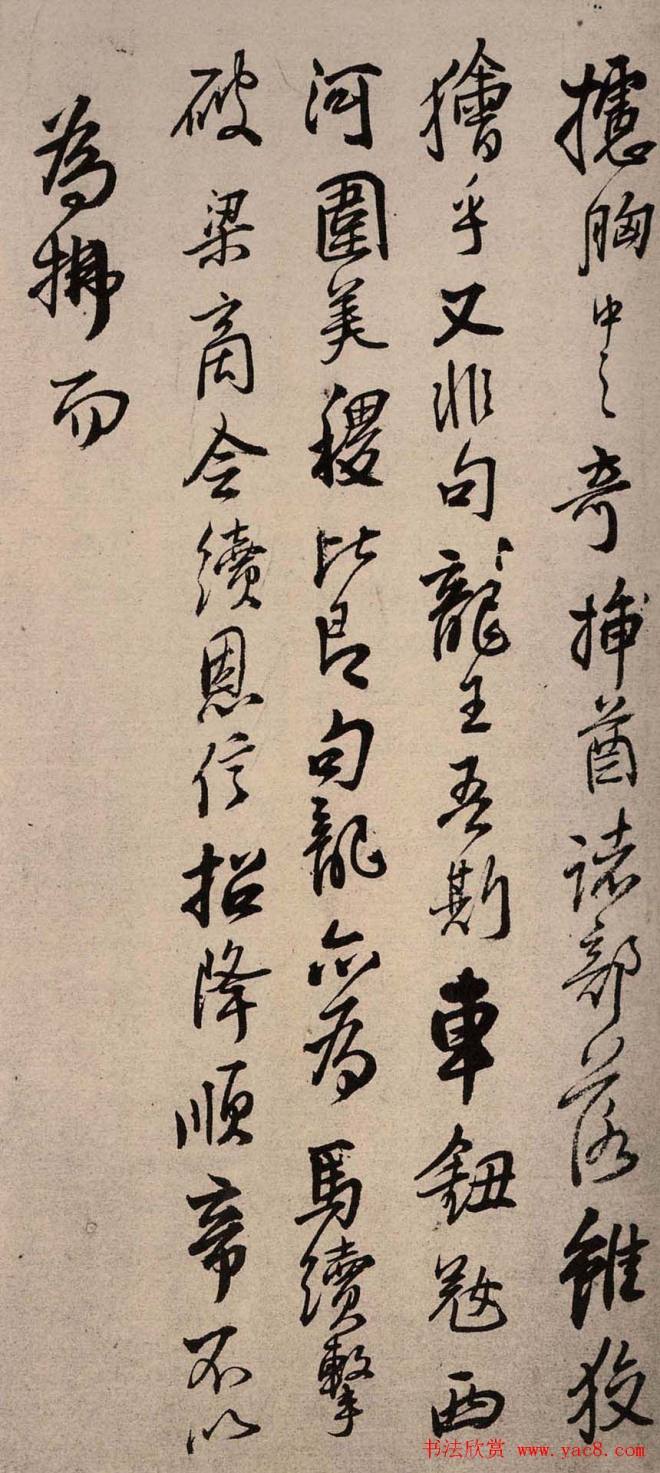 攄胸中之奇捕酋諸部落雖狡
獪乎又非句龍王吾斯車鈕寇西
河圍美稷比邑句龍亦為馬續擊
破梁商令續恩信招降順帝不以
為拂而
书法欣赏 www.yac8.com